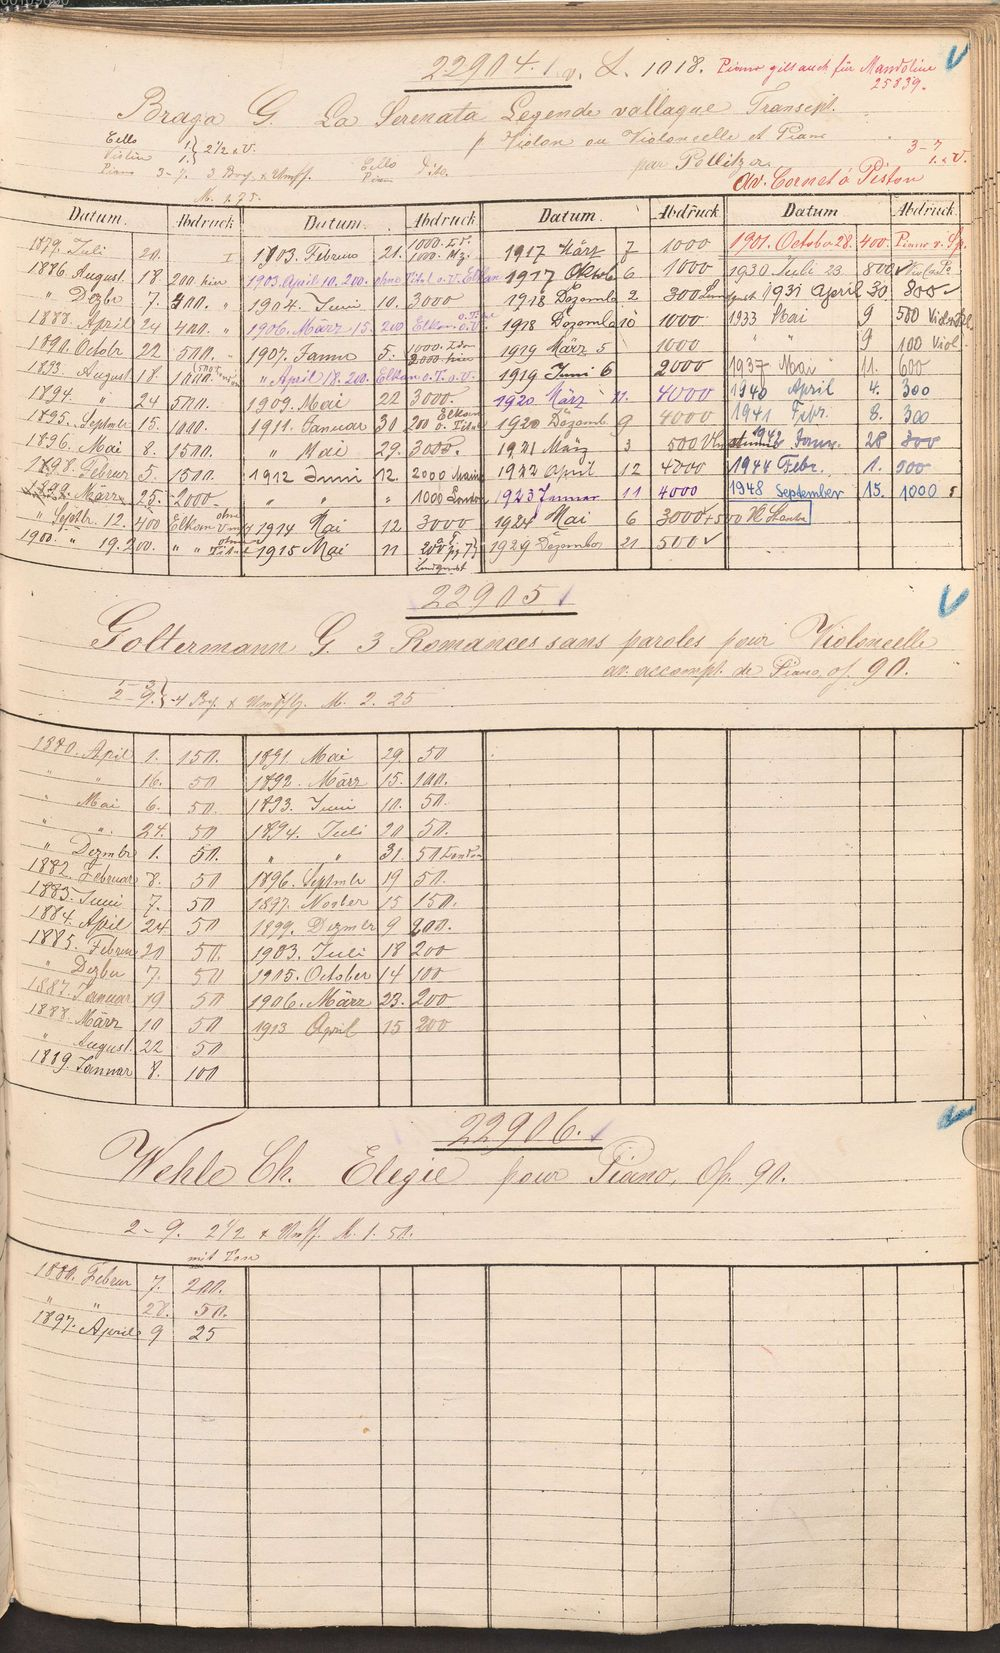 22904.1. v. L. 1018. Piano gilt auch für Mandoline
25839.
Braga G. La Serenata Legende vallaque Transcpt.
p Violon ou Violoncelle et Piano
par Pollitzer
Cello 1 } 2 1/2 x V.
Violin 1.
Piano 3-7. 3 Bog. x Umff.
Cello
Piano Dito.
3-7
1. x V.
av. Cornet à Piston
M. 2 75.
Datum. Abdruck Datum. Abdruck Datum. Abdruck Datum Abdruck.
1879. Juli 20. I
1886. August. 18. 200 hier
" Dezbr 7. 300. "
1888. April 24 400. "
1890. Octobr 22 500. "
1893. August 18. 1000.
1894. " 24 500.
1895. Septmbr 15. 1000.
1896. Mai 8. 1500.
1898. Februar 5. 1500.
1899. März 25. 2000.
" Septbr. 12. 400 Elkan ohne Umff
1900. " 19. 200. " " ohne Titel
1903. Februar 21. 1000
1903. April 10. 200. ohne Titel o. V. Elkan
1904. Juni 10. 3000
1906. März 15. 200 Elkan o. Titel o. V.
1907. Januar 5. 1000 Ldn 2000 hier
" April 18. 200. Elkan o. T. o. V.
1909. Mai 22 3000.
1911. Januar 30 200 Elkan o. Titel
" Mai 29. 3000.
1912 Juni 12. 2000
" " " 1000 London
1914 Mai 12. 3000
1915 Mai 11 200
Lundquist
1917 März 7 1000
1917 Oktob 6 1000
1918 Dezemb 2 300 Lundquist
1918 Dezemb 10 1000
1919 März 5 1000
1919 Juni 6 2000
1920 März 11. 4000
1920 Dezemb 9 4000
1921 März 3 500
1922 April 12 4000
1923 Januar 11 4000
1924 Mai 6 3000 + 500
1929 Dezember 21 500 ✓
1901. October 28. 400. Piano x. Sp.
1930 Juli 23 800 ✓
1931 April 30. 800 ✓
1933 Mai 9 500
" " 9 100 Viol.
1937 Mai 11. 600
1940 April 4. 300
1941 Febr. 8. 300
1942 Janr. 28 300
1944 Febr. 1. 500
1948 September 15. 1000
22905.
Goltermann G. 3 Romances sans paroles pour Violoncelle
av. accompt. de Piano, op. 90.
1-3
2-9. } 4 Bg. x Umffg. M. 2. 25
1880. April 1. 150. 1891. Mai 29. 50
" " 16. 50 1892. März 15. 100.
" Mai 6. 50. 1893. Juni 10. 50.
" " 24. 50 1894. Juli 20 50.
" Dezmbr 1. 50. " " 31. 50 London
1882. Februar 8. 50 1896. Septmbr 19 50.
1883. Juni 7. 50 1897. Novber 15 150.
1884. April 24 50 1899. Dezmbr 9 200.
1885. Februar 20 50. 1903. Juli 18 200
" Dezber 7. 50 1905. October 14 100
1887. Januar 19 50 1906. März 23. 200
1888. März 10 50 1913 April 15 200
" August. 22 50
1889. Januar 8. 100
22906.
Wehle Ch. Elegie pour Piano, Op. 90.
2-9. 2 1/2 x Umff. M. 1. 50.
mit Ton
1880. Februar 7. 200.
" " 28. 50.
1897. April 9 25